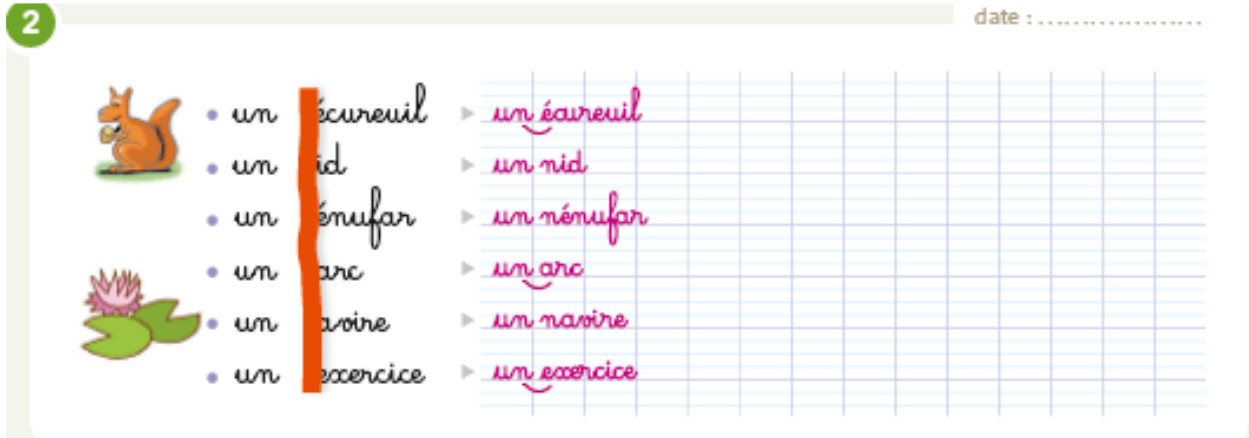 2
date : ...................
• un écureuil ▶ un écureuil
• un id ▶ un nid
• un énufar ▶ un nénufar
• un arc ▶ un arc
• un avire ▶ un navire
• un exercice ▶ un exercice